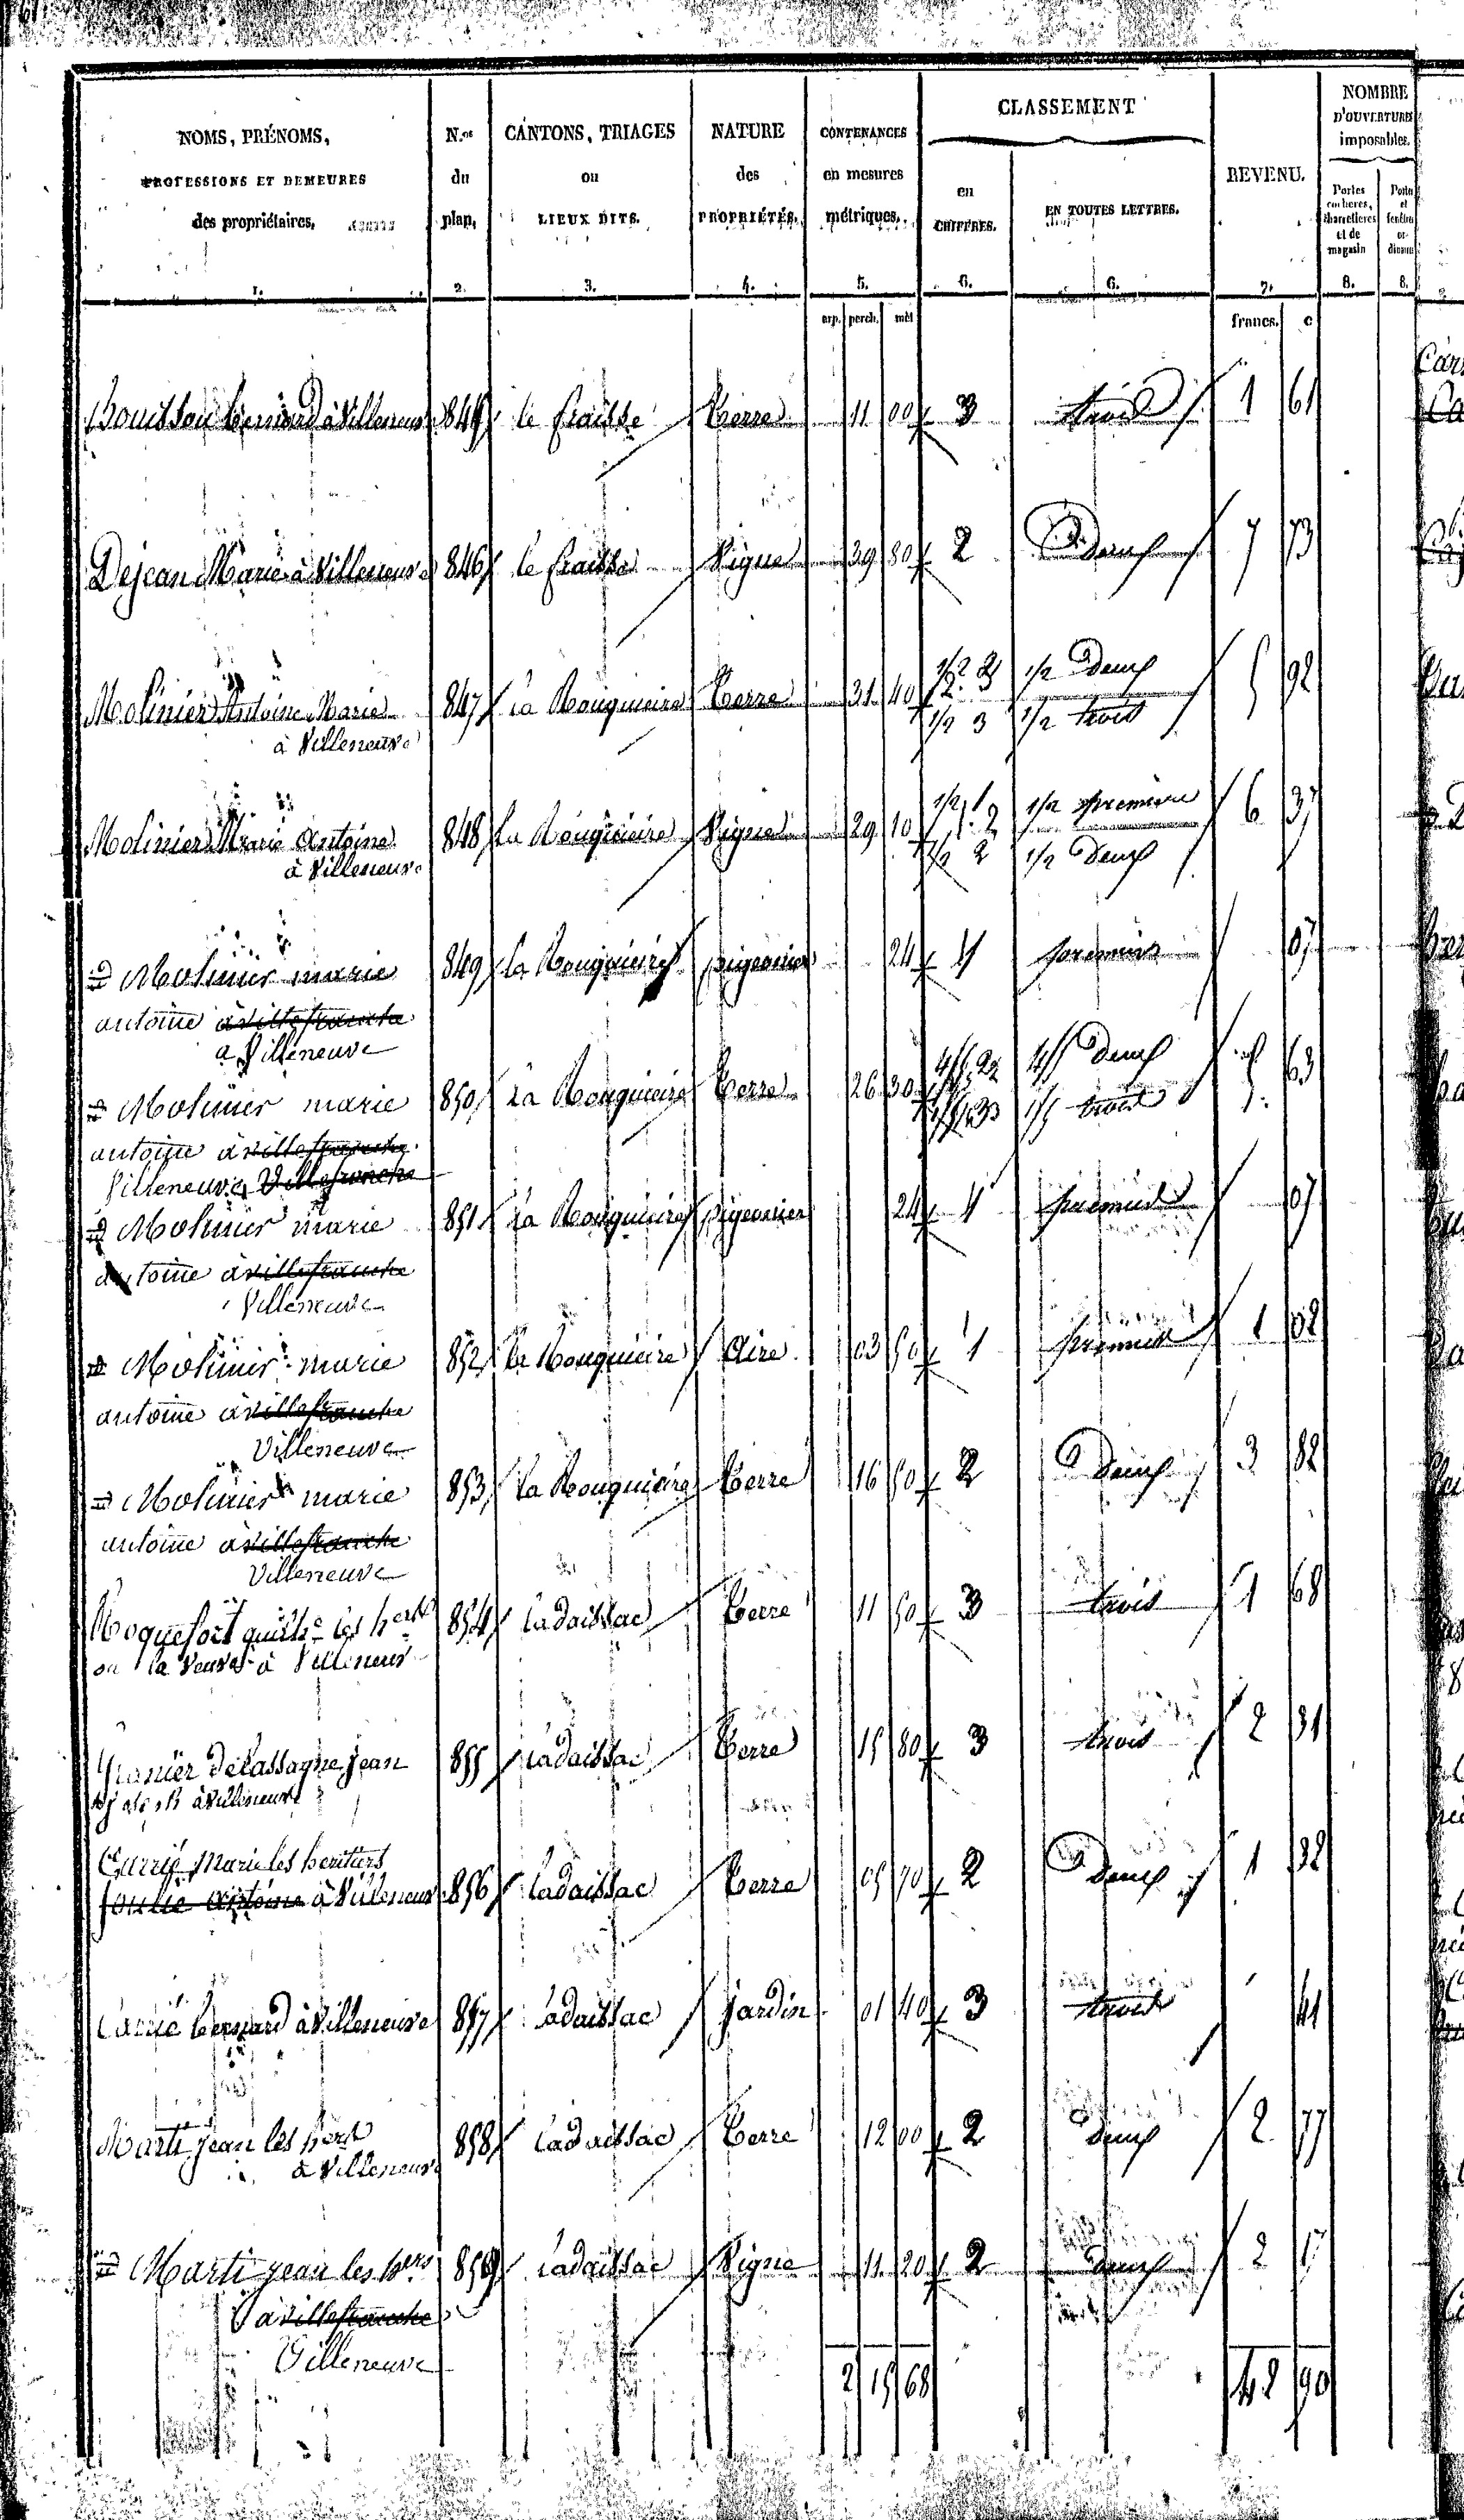 NOMS, PRÉNOMS, PROFESSIONS ET DEMEURES des propriétaires. 1.
N.os du plan. 2.
CANTONS, TRIAGES ou LIEUX DITS. 3.
NATURE des PROPRIÉTÉS. 4.
CONTENANCES en mesures métriques. 5.
CLASSEMENT
en CHIFFRES. 6.
EN TOUTES LETTRES. 6.
REVENU. 7.
NOMBRE D'OUVERTURES imposables.
Portes cocheres, charretieres et de magasin 8.
Portes et fenêtres ordinaires 8.
arp. perch. mèt francs. c
Bouissou Bernard à Villeneuve 845 le fraisse Terre 11 00 3 trois 1 61
Dejean Marie à Villeneuve 846 le fraisse Vigne 39 80 2 Deux 7 73
Molinier Antoine Marie 847 la Rouquieire Terre 31 40 1/2 2 1/2 Deux 5 92
à Villeneuve 1/2 3 1/2 trois
Molinier Marie Antoine 848 La Rouquieire Vigne 29 10 1/2 1 1/2 première 6 37
à Villeneuve 1/2 2 1/2 Deux
Molinier marie 849 la Rouquieire pigeonier 24 1 première 07
antoine à villefranche
a Villeneuve
Molinier marie 850 La Rouquieire Terre 26 30 4/5 2 4/5 Deux 5 63
antoine à villefranche 1/5 3 1/5 trois
Villeneuve Villefranche
Molinier marie 851 La Rouquieire pigeonier 24 1 première 07
antoine à villefranche
Villeneuve
Molinier marie 852 la Rouquieire Aire 03 50 1 première 1 02
antoine à villefranche
Villeneuve
Molinier marie 853 la Rouquieire Terre 16 50 2 Deux 3 82
antoine à villefranche
Villeneuve
Roquefort les hers 854 Ladaissac Terre 11 50 3 trois 1 68
ou la Veuve à Villeneuve
Granier delassagne Jean 855 Ladaissac Terre 15 80 3 trois 2 31
à Villeneuve
Marie les heritiers
à Villeneuve 856 Ladaissac Terre 05 70 2 Deux 1 32
Carrié Bernard à Villeneuve 857 Ladaissac Jardin 01 40 3 trois 41
Marti Jean les hers 858 Ladaissac Terre 12 00 2 Deux 2 77
à Villeneuve
Marti jean les hers 859 Ladaissac Vigne 11 20 2 deux 2 17
à villefranche
Villeneuve
2 15 68 42 90